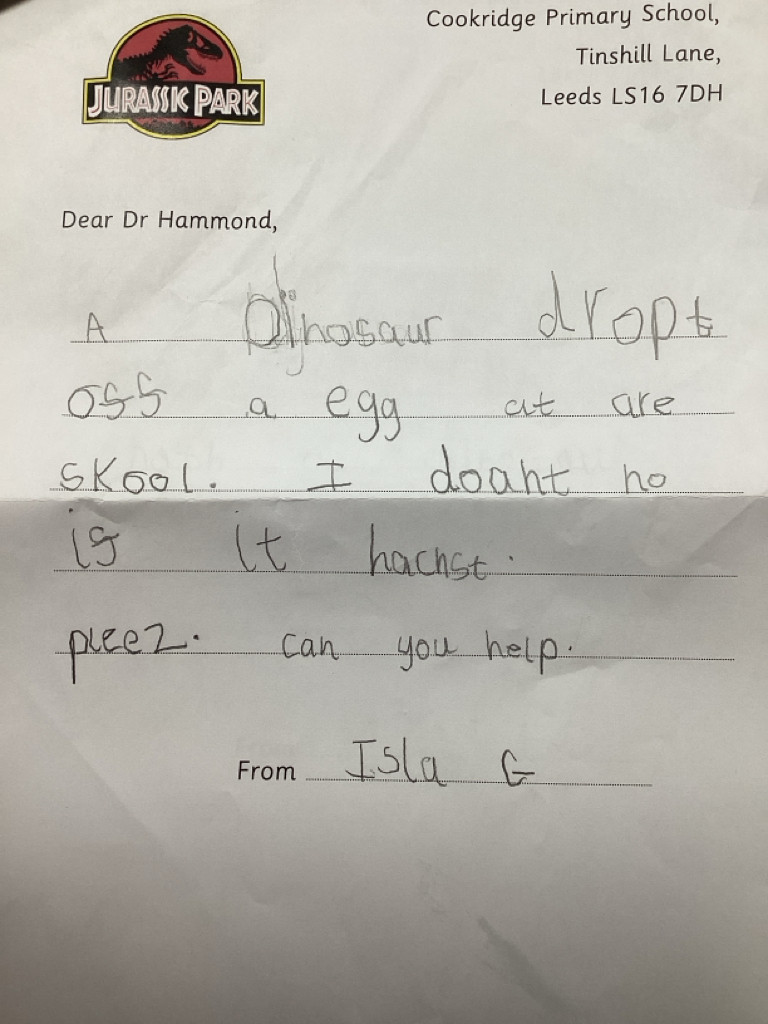 JURASSIC PARK
Cookridge Primary School,
Tinshill Lane,
Leeds LS16 7DH
Dear Dr Hammond,
A Dinosaur dropt
off a egg at are
skool. I doaht no
if it hachst.
pleez. can you help.
From Isla G